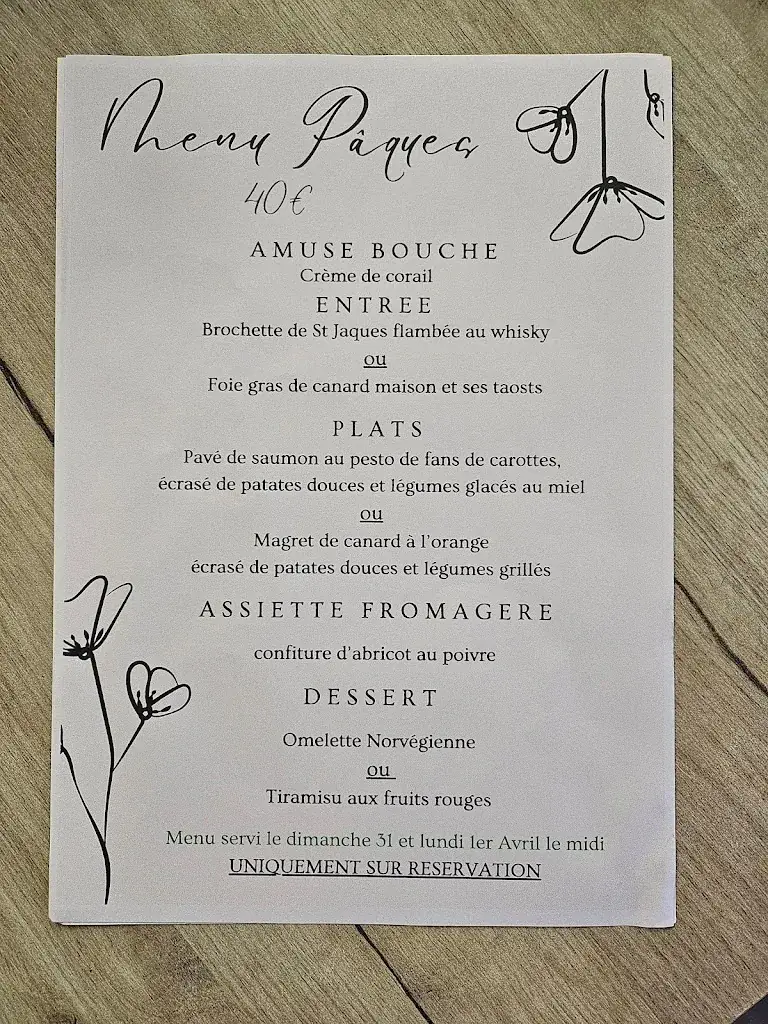 Menu Pâques
40€
AMUSE BOUCHE
Crème de corail
ENTREE
Brochette de St Jaques flambée au whisky
ou
Foie gras de canard maison et ses taosts
PLATS
Pavé de saumon au pesto de fans de carottes,
écrasé de patates douces et légumes glacés au miel
ou
Magret de canard à l'orange
écrasé de patates douces et légumes grillés
ASSIETTE FROMAGERE
confiture d'abricot au poivre
DESSERT
Omelette Norvégienne
ou
Tiramisu aux fruits rouges
Menu servi le dimanche 31 et lundi 1er Avril le midi
UNIQUEMENT SUR RESERVATION